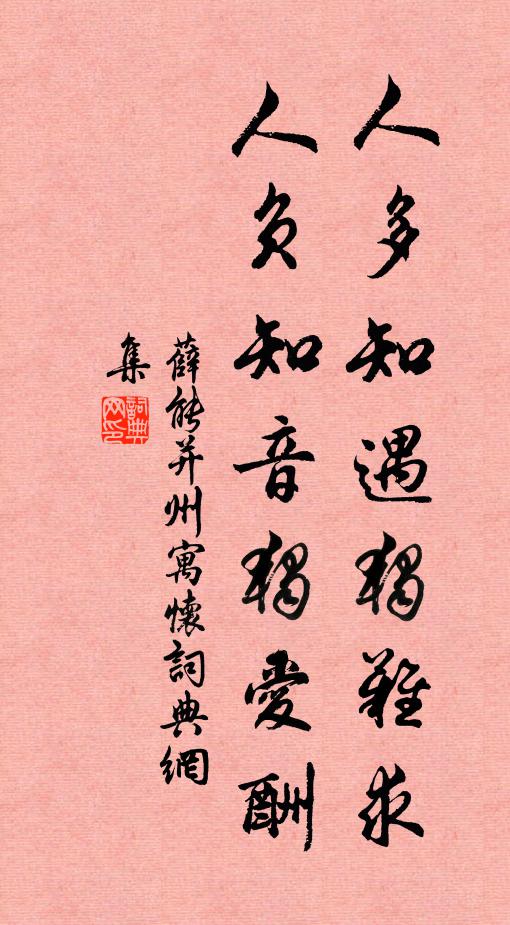 人多知遇獨難求
人負知音獨愛酬
薛能并州寓懷詞典網
集
詞典網印